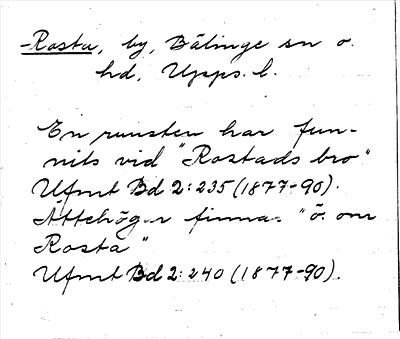 -Rosta, by, Bälinge sn o.
hd, Upps. l.
En runsten har fun-
nits vid "Rostads bro"
Ufmt Bd 2: 235 (1877-90).
Ättehögar finnas "ö. om
Rosta"
Ufmt Bd 2: 240 (1877-90).